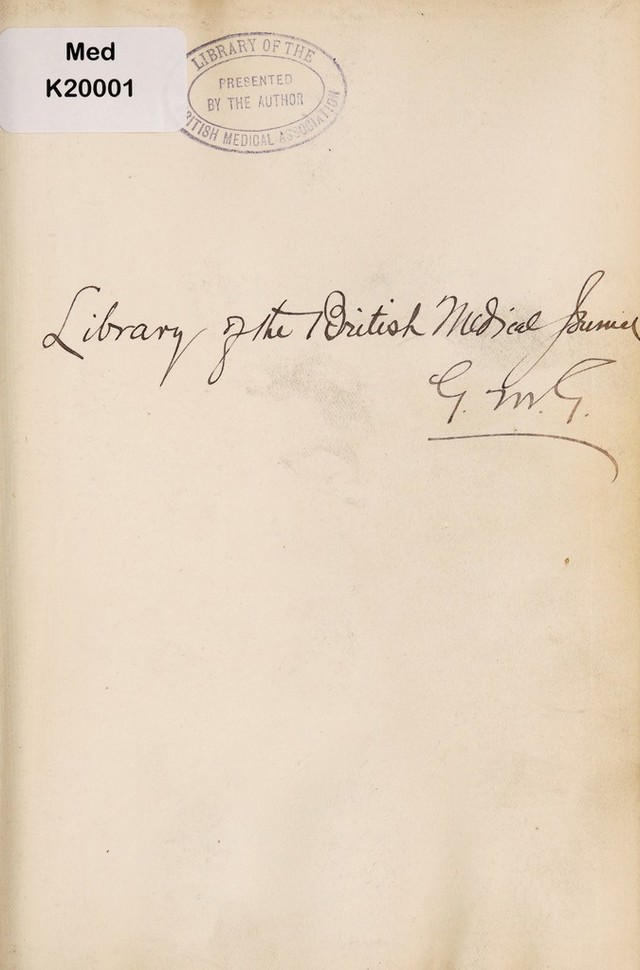 Med
K20001
LIBRARY OF THE
PRESENTED
BY THE AUTHOR
BRITISH MEDICAL ASSOCIATION
Library of the British Medical Journal
G. M. G.